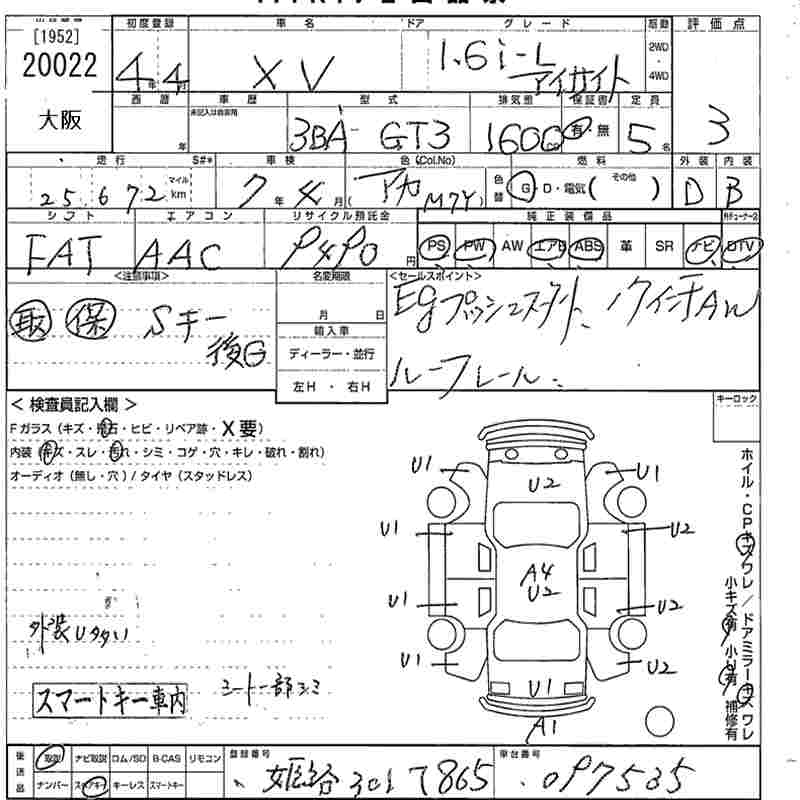 [1952]
20022
大阪
初度登録 車名 ドア グレード 駆動 評価点
4年4月 XV 1.6i-L アイサイト 2WD・4WD 3
西暦 車歴 型式 排気量 保証書 定員
年 未記入は自家用 3BA-GT3 1600cc 有・無 5名
走行 S#* 車検 色(Col.No) 燃料 外装 内装
25,672 マイル km 7年4月 (アカ M7Y) 色替 G・D・電気( その他 ) D B
シフト エアコン リサイクル預託金 純正装備品
FAT AAC 円 PS PW AW エアB ABS 革 SR ナビ DTV
<注意事項> 名変期限 <セールスポイント>
取 保 Sキー Egプッシュスタート、17インチAW
後G 月 日
輸入車
ディーラー・並行 ルーフレール
左H ・ 右H
＜ 検査員記入欄 ＞ キーロック
Fガラス (キズ・飛石・ヒビ・リペア跡・X要)
内装 (キズ・スレ・汚れ・シミ・コゲ・穴・キレ・破れ・割れ)
オーディオ (無し・穴) / タイヤ (スタッドレス)
U1 U2 U1
U1 U2
A4
U2
U1 U2
U1 U2
U1
A1
ホイル・CPキズワレ/ドアミラーキズワレ
小キズ有 小U有 補修有
外装Uタタい
シート一部シミ
スマートキー車内
後送品 取説 ナビ取説 ロム/SD B-CAS リモコン 登録番号 車台番号
ナンバー スペアキー キーレス スマートキー 姫路 301 7865 097535